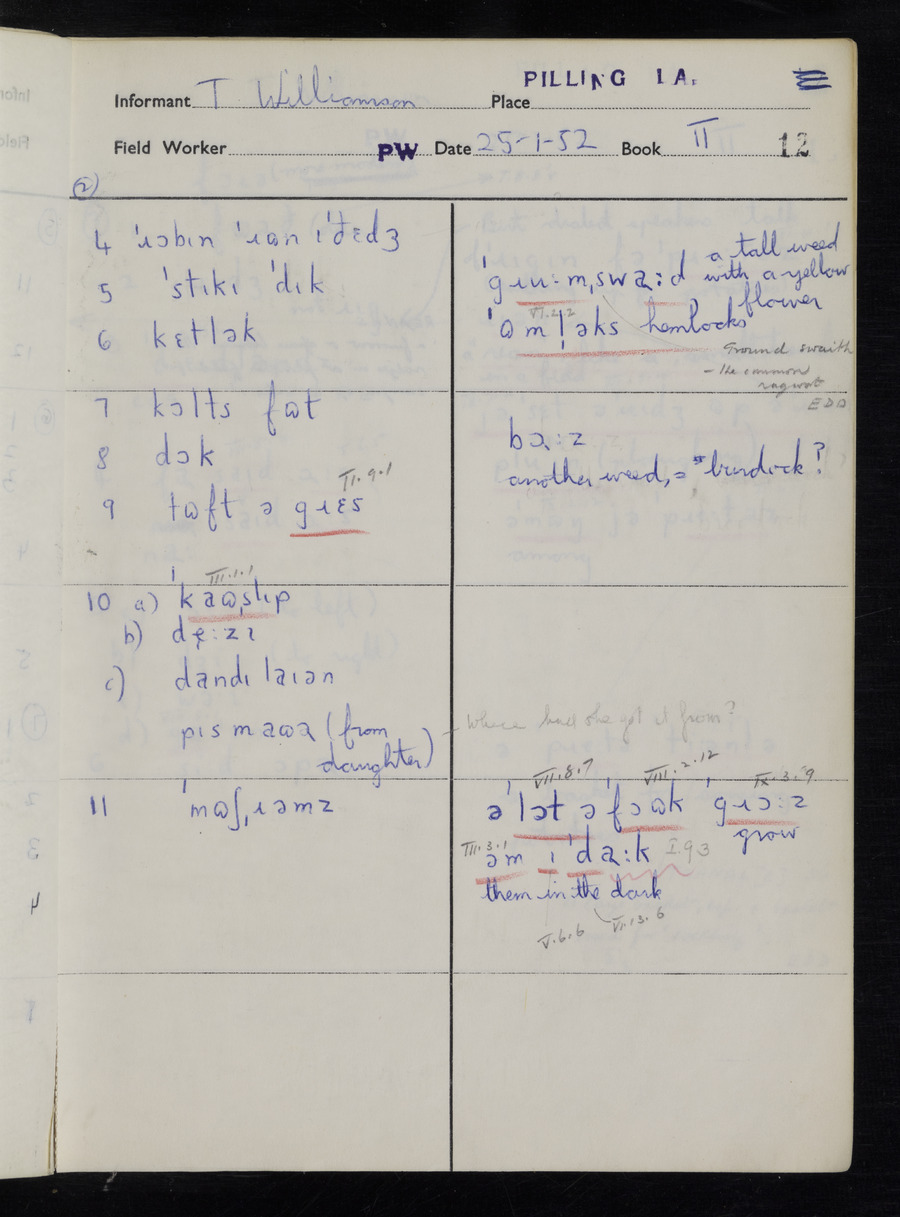 PILLING 1A.
Informant T Williamson Place
Field Worker PW Date 25-1-52 Book II 12
(2)
4 ˈɹɔbɪn ˈɹɷn ɪˈðɛdʒ
5 ˈstɪkɪ ˈdɪk
6 kɛtlək
7 kɔlts fɷt
8 dɔk
II.9.1
9 tɷft ə gɹɛs
III.1.1
10 a) ˈkaɷˌslɪp
b) dẹːzɪ
c) dandɪlaɪən
pɪsmaɷa (from
daughter)
11 ˈmɷʃˌɹəmz
a tall weed
with a yellow
flower
VI.2.2
ˈɷml̩əks hemlocks
Ground swaith
- the common
ragwort
EDD
another weed, = burdock?
Where had she got it from?
VII.8.7 VIII.2.12 IX.3.9
əˈlɔt əˈfɔɷk ˈgɹɔːz
grow
III.3.1
əm ɪˈdaːk I.93
them in the dark
V.6.6 VI.13.6